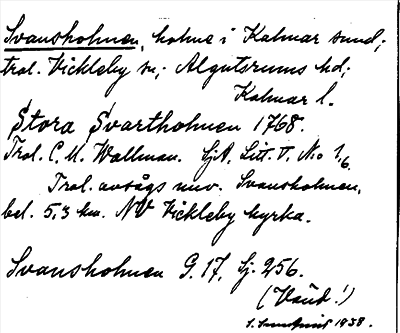 Svansholmen, holme i Kalmar sund;
trol. Vickleby sn; Algutsrums hd;
Kalmar l.
Stora Svartholmen 1768.
Trol. C. M. Wallman. SjA, Litt. V. No 1,6.
Trol. avsågs nuv. Svansholmen,
bel. 5,3 km. NV Vickleby kyrka.
Svansholmen G. 17, Sj. 256.
(Vänd!)
1938.